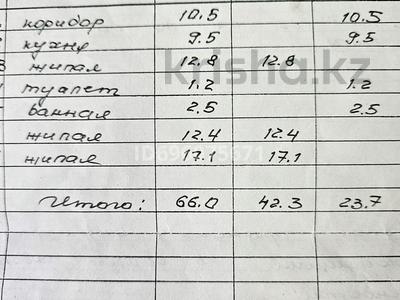 коридор 10.5 10.5
кухня 9.5 9.5
жилая 12.8 12.8
туалет 1.2 1.2
ванная 2.5 2.5
жилая 12.4 12.4
жилая 17.1 17.1
Итого: 66.0 42.3 23.7
krisha.kz